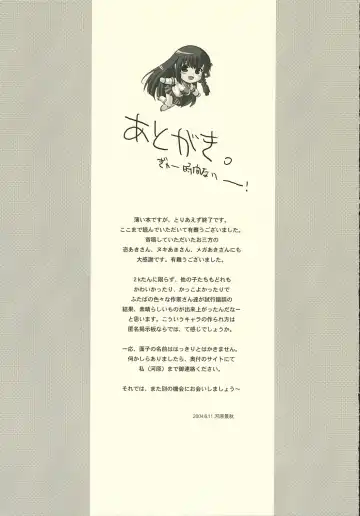 あとがき。
ぎゃー 時間ないー!
薄い本ですが、とりあえず終了です。
ここまで読んでいただいて有難うございました。
寄稿していただいたお三方の
恋あきさん、ヌキあきさん、メガあきさんにも
大感謝です。有難うございました。
2Kたんに限らず、他の子たちもどれも
かわいかったり、かっこよかったりで
ふたばの色々な作家さん達が試行錯誤の
結果、素晴らしいものが出来上がったんだなー
と思います。こういうキャラの作られ方は
匿名掲示板ならでは、て感じでしょうか。
一応、冊子の名前ははっきりとはかきません。
何かしらありましたら、奥付のサイトにて
私(河原)まで御連絡ください。
それでは、また回の機会にお会いしましょう〜
2004/8/11 河原夏秋